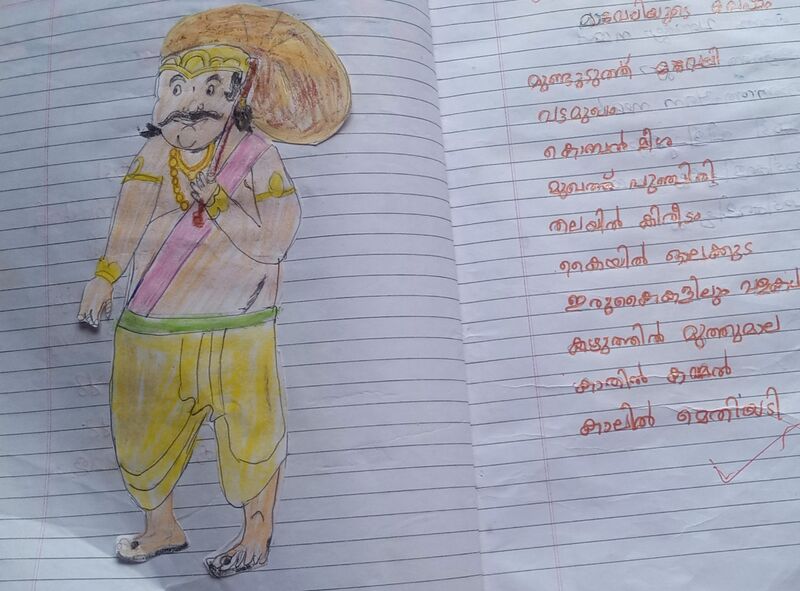 മാവേലിയുടെ വേഷം
മുണ്ടുടുത്ത് കുടവേലി
വട്ടമുഖം
കൊമ്പൻ മീശ
മുഖത്ത് പുഞ്ചിരി
തലയിൽ കിരീടം
കൈയിൽ ഓലക്കുട
ഇരുകൈകളിലും
കഴുത്തിൽ മുത്തുമാല
കാതിൽ കമ്മൽ
കാലിൽ മെതിയടി